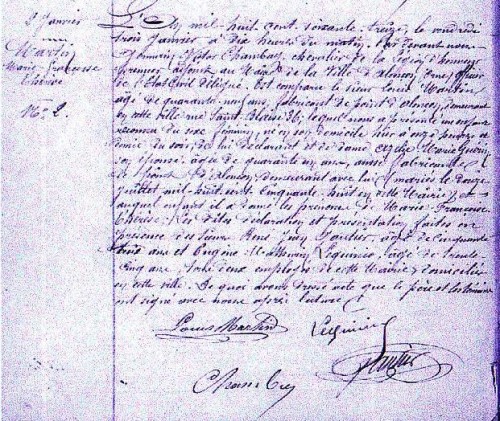 2 Janvier
Martin
Marie Françoise
Thérèse
N° 2.
L'An mil huit cent soixante treize, le vendredi
trois Janvier à Dix heures du matin, Par devant nous
Victor Chambay, chevalier de la Légion d'honneur
premier adjoint au Maire de la Ville d'Alençon, Orne, officier
de l'Etat Civil délégué. Est comparu le sieur Louis Martin
âgé de quarante neuf ans, fabricant de point d'Alençon, demeurant
en cette ville rue Saint Blaise 36, lequel nous a présenté un enfant
reconnu du sexe féminin, né en son domicile hier à onze heures et
demie du soir, de lui déclarant et de dame Zélie Marie Guérin
son épouse, âgée de quarante un ans, aussi fabricant
de Point d'Alençon, demeurant avec lui, mariés le douze
juillet mil huit cent cinquante huit en cette Mairie, et
auquel enfant il a donné les prénoms de Marie-Françoise
Thérèse. Les dites déclaration et présentation faites en
présence des sieurs René Jean Gautier, âgé de cinquante
trois ans et Eugène Mathurin Leguernec, âgé de trente
cinq ans, tous deux employés de cette Mairie, domiciliés
en cette ville. De quoi avons dressé acte que le père et les témoins
ont signé avec nous après lecture
Louis Martin
Gautier
Chambay